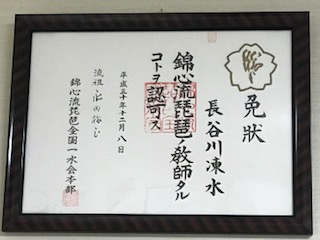 免狀
長谷川凍水
錦心流琵琶ノ教師タル
コトヲ認可ス
平成三十年十二月八日
流祖
錦心流琵琶全国一水会本部